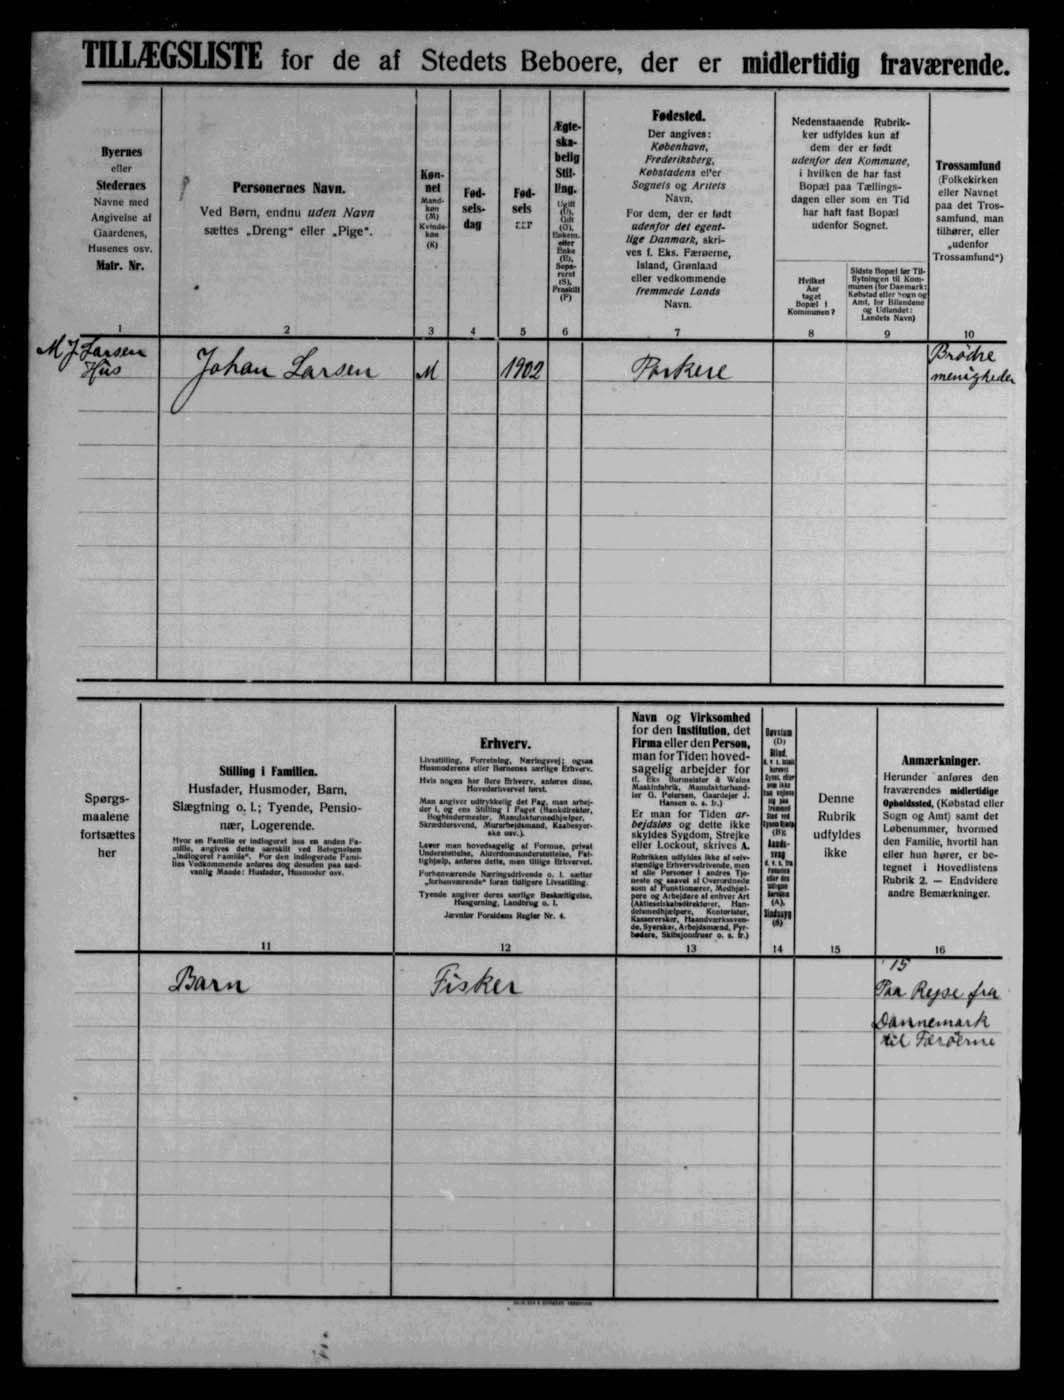 TILLÆGSLISTE for de af Stedets Beboere, der er midlertidig fraværende.
Byernes
eller
Stedernes
Navne med
Angivelse af
Gaardenes,
Husenes osv.
Matr. Nr.
1
Personernes Navn.
Ved Børn, endnu uden Navn
sættes „Dreng“ eller „Pige“.
2
Køn-
net
Mand-
køn
(M)
Kvinde-
køn
(K)
3
Fød-
sels-
dag
4
Fød-
sels
5
Ægte-
ska-
belig
Stil-
ling.
Ugift
(U),
Gift
(G),
Enkem.
eller
Enke
(E),
Sepa-
reret
(S),
Fraskilt
(F)
6
Fødested.
Der angives:
København,
Frederiksberg,
Købstadens eller
Sognets og Amtets
Navn.
For dem, der er født
udenfor det egent-
lige Danmark, skri-
ves f. Eks. Færøerne,
Island, Grønland
eller vedkommende
fremmede Lands
Navn.
7
Nedenstaaende Rubrik-
ker udfyldes kun af
dem der er født
udenfor den Kommune,
i hvilken de har fast
Bopæl paa Tællings-
dagen eller som en Tid
har haft fast Bopæl
udenfor Sognet.
Hvilket
Aar
taget
Bopæl i
Kommunen?
8
Sidste Bopæl før Til-
flytningen til Kom-
munen (for Danmark:
Købstad eller Sogn og
Amt, for Bilandene
og Udlandet:
Landets Navn)
9
Trossamfund
(Folkekirken
eller Navnet
paa det Tros-
samfund, man
tilhører, eller
„udenfor
Trossamfund“)
10
M J Larsen
Hus
Johan Larsen
M
1902
Porkere
Brødre
menigheden
Spørgs-
maalene
fortsættes
her
Stilling i Familien.
Husfader, Husmoder, Barn,
Slægtning o. l.; Tyende, Pensio-
nær, Logerende.
Hvor en Familie er indlogeret hos en anden Fa-
milie, angives dette særskilt ved Betegnelsen
„indlogeret Familie“. For den indlogerede Fami-
lies Vedkommende anføres dog desuden paa sæd-
vanlig Maade: Husfader, Husmoder osv.
11
Erhverv.
Livsstilling, Forretning, Næringsvej; ogsaa
Husmoderens eller Børnenes særlige Erhverv.
Hvis nogen har flere Erhverv, anføres disse,
Hovederhvervet først.
Man angiver udtrykkelig det Fag, man arbej-
der i, og ens Stilling i Faget (Bankdirektør,
Bogbindermester, Manufakturmedhjælper,
Skræddersvend, Murarbejdsmand, Kassebestyr-
ke osv.).
Lever man hovedsagelig af Formue, privat
Understøttelse, Alderdomsunderstøttelse, Fat-
tighjælp, anføres dette, men tillige Erhvervet.
Forhenværende Næringsdrivende o. l. sætter
„forhenværende“ foran tidligere Livsstilling.
Tyende angiver deres særlige Beskæftigelse,
Husgerning, Landbrug o. l.
Jævnfør Forsidens Regler Nr. 4.
12
Navn og Virksomhed
for den Institution, det
Firma eller den Person,
man for Tiden hoved-
sagelig arbejder for
(f. Eks Burmeister & Wains
Maskinfabrik, Manufakturhand-
ler G. Petersen, Gaardejer J.
Hansen o. s. fr.)
Er man for Tiden ar-
bejdsløs og dette ikke
skyldes Sygdom, Strejke
eller Lockout, skrives A.
Rubrikken udfyldes ikke af selv-
stændige Erhvervsdrivende, men
af alle Personer i andres Tje-
neste og saavel af Overordnede
som af Funktionærer, Medhjæl-
pere og Arbejdere af enhver Art
(Aktieselskabsdirektører, Han-
delsmedhjælpere, Kontorister,
Kassererrsker, Haandværkssven-
de, Syersker, Arbejdsmænd, Fyr-
bødere, Skibsjomfruer o. s. fr.)
13
Døvstum
(D)
Blind,
(B);
Aands-
svag
(A),
Sindssyg
(S)
14
Denne
Rubrik
udfyldes
ikke
15
Anmærkninger.
Herunder anføres den
fraværendes midlertidige
Opholdssted, (Købstad eller
Sogn og Amt) samt det
Løbenummer, hvormed
den Familie, hvortil han
eller hun hører, er be-
tegnet i Hovedlistens
Rubrik 2. — Endvidere
andre Bemærkninger.
16
Barn
Fisker
15
Paa Rejse fra
Dannemark
til Færøerne